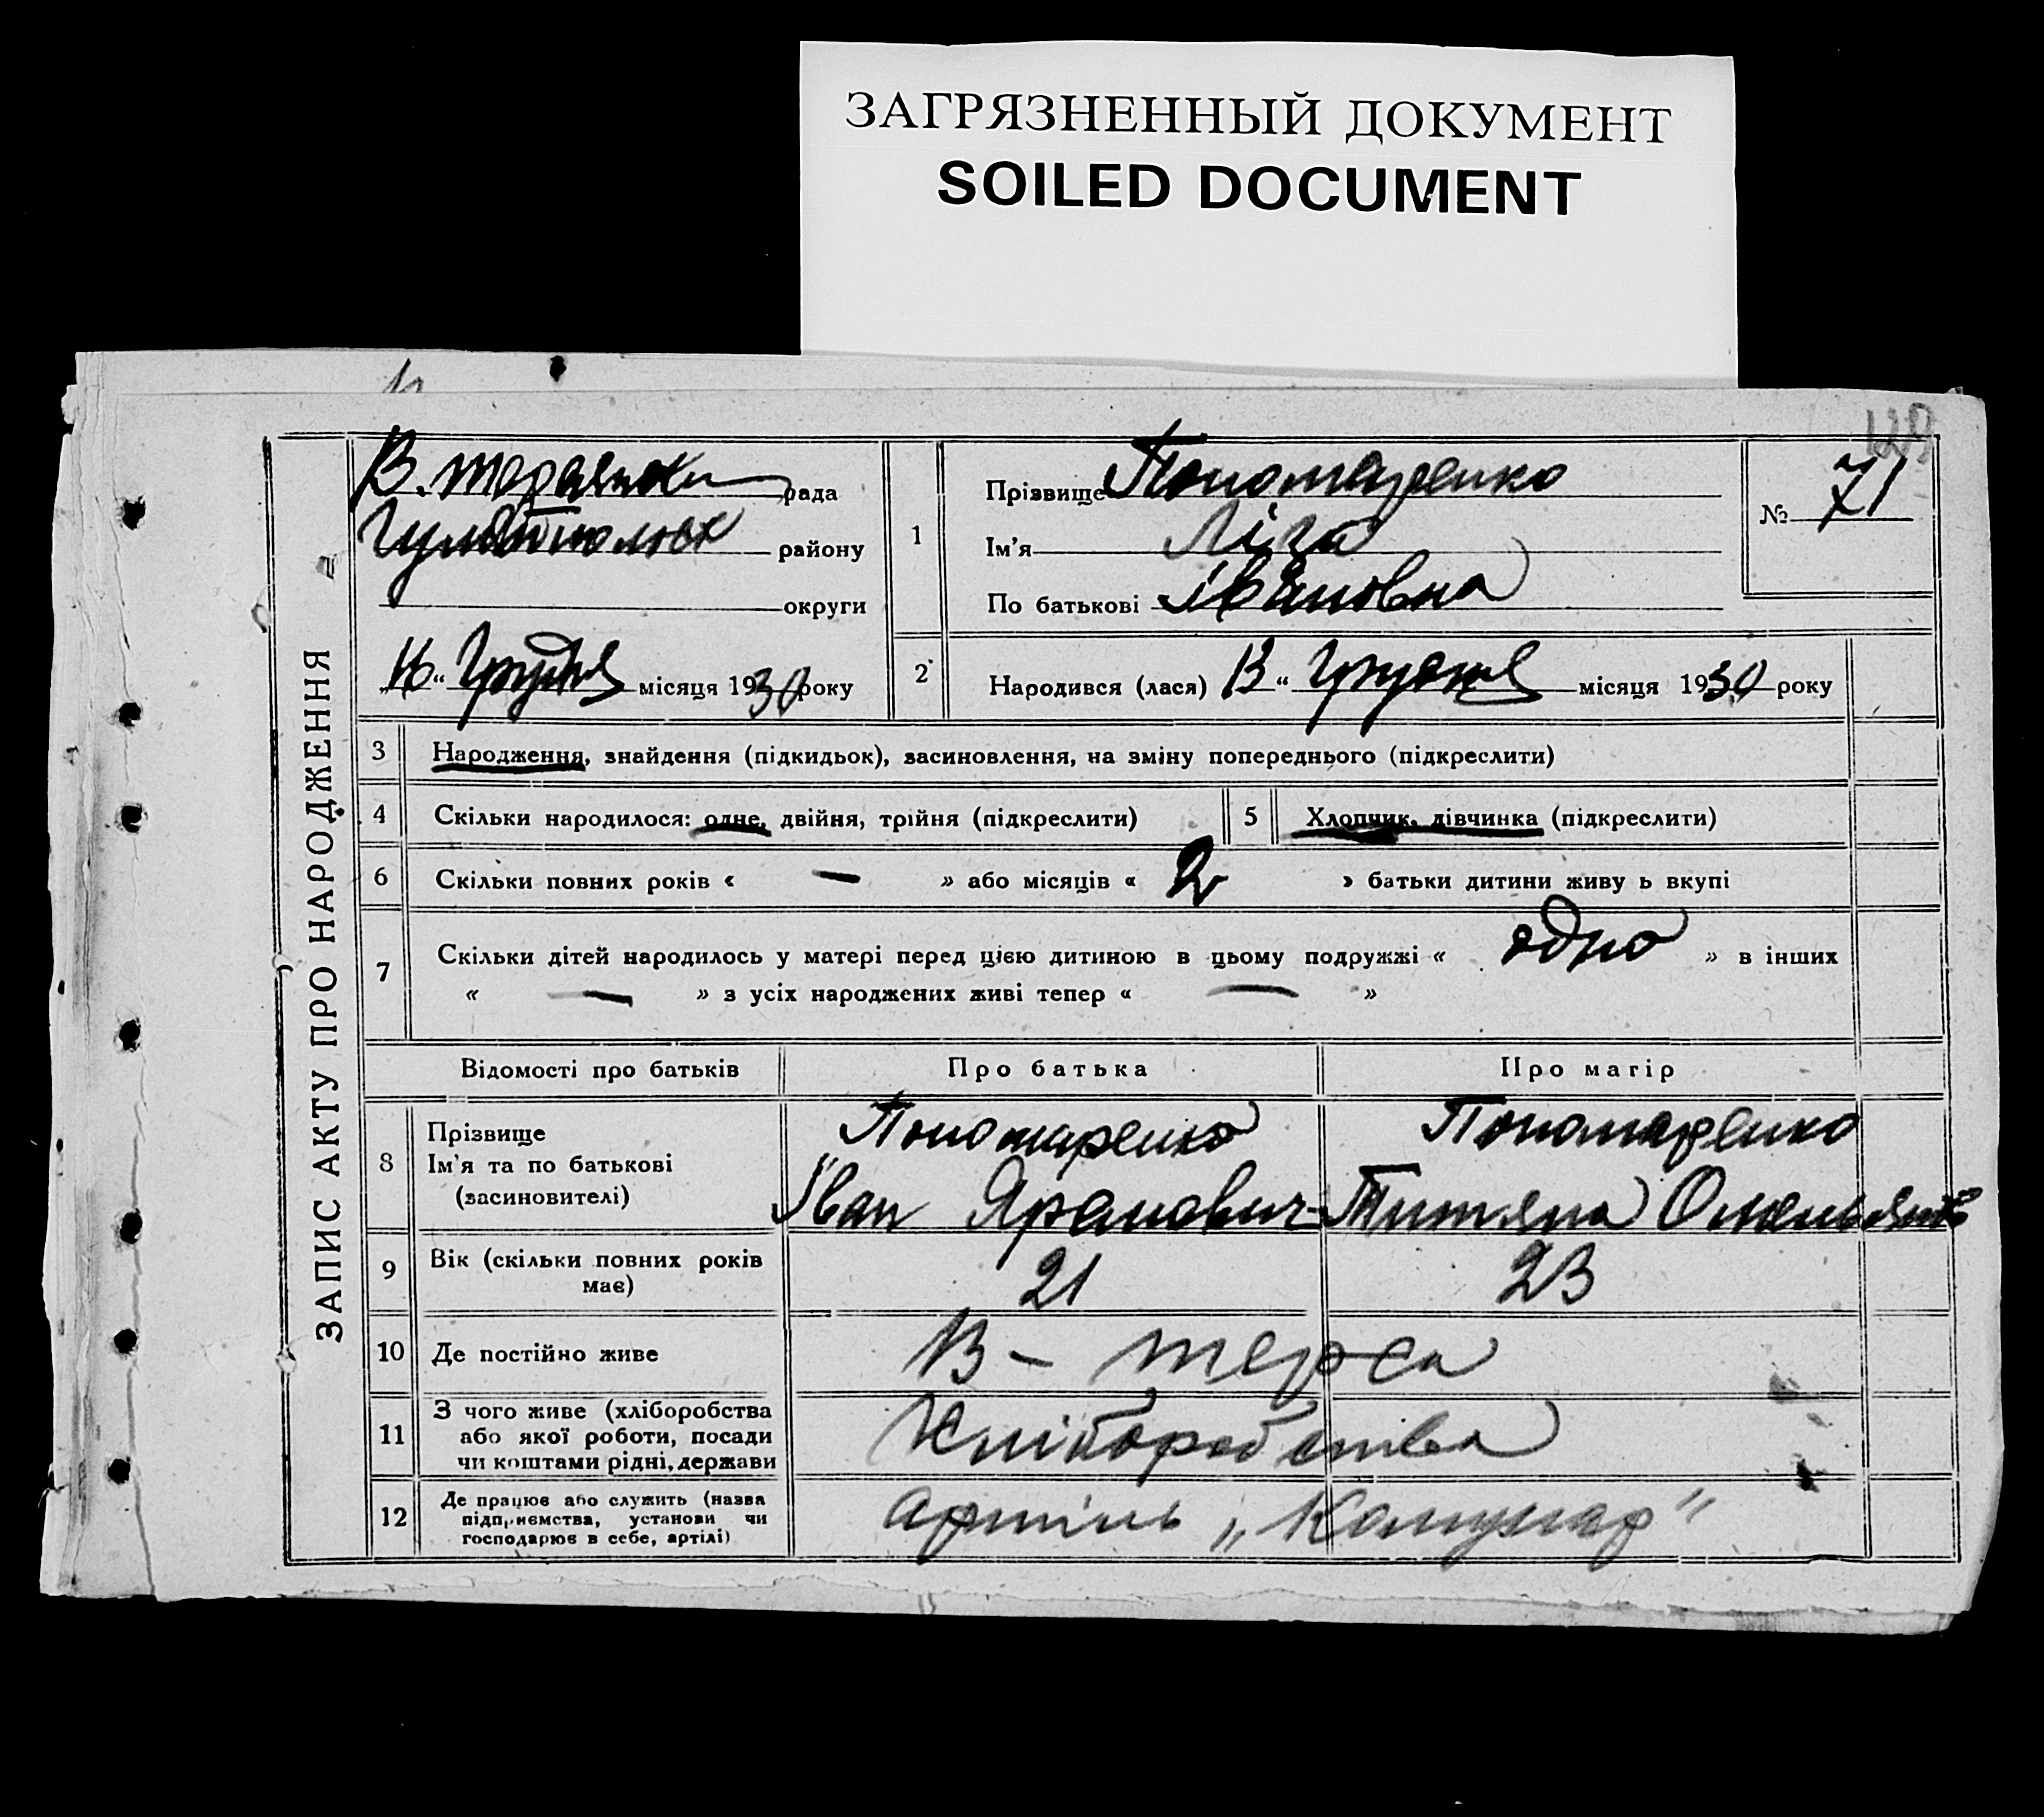 ЗАГРЯЗНЕННЫЙ ДОКУМЕНТ
SOILED DOCUMENT
129
ЗАПИС АКТУ ПРО НАРОДЖЕННЯ
рада
району
округи
16 “ Грудня місяця 1930 року
1
Прізвище Пономаренко
Ім'я Ліза
По батькові Івановна
№ 71
2 Народився (лася) 13 “ Грудня місяця 1930 року
3 Народження, знайдення (підкидьок), засиновлення, на зміну попереднього (підкреслити)
4 Скільки народилося: одне, двійня, трійня (підкреслити) 5 Хлопчик, дівчинка (підкреслити)
6 Скільки повних років « — » або місяців « 2 » батьки дитини живу ь вкупі
7 Скільки дітей народилось у матері перед цією дитиною в цьому подружжі « одно » в інших
« — » з усіх народжених живі тепер « — »
Відомості про батьків Про батька Про матір
8 Прізвище Пономаренко Пономаренко
Ім'я та по батькові
(засиновителі) Іван Титяна
9 Вік (скільки повних років 21 23
має)
10 Де постійно живе В - терса
11 З чого живе (хліборобства Хліборобства
або якої роботи, посади
чи коштами рідні, держави
12 Де працює або служить (назва артіль „
підприємства, установи чи
господарює в себе, артілі)